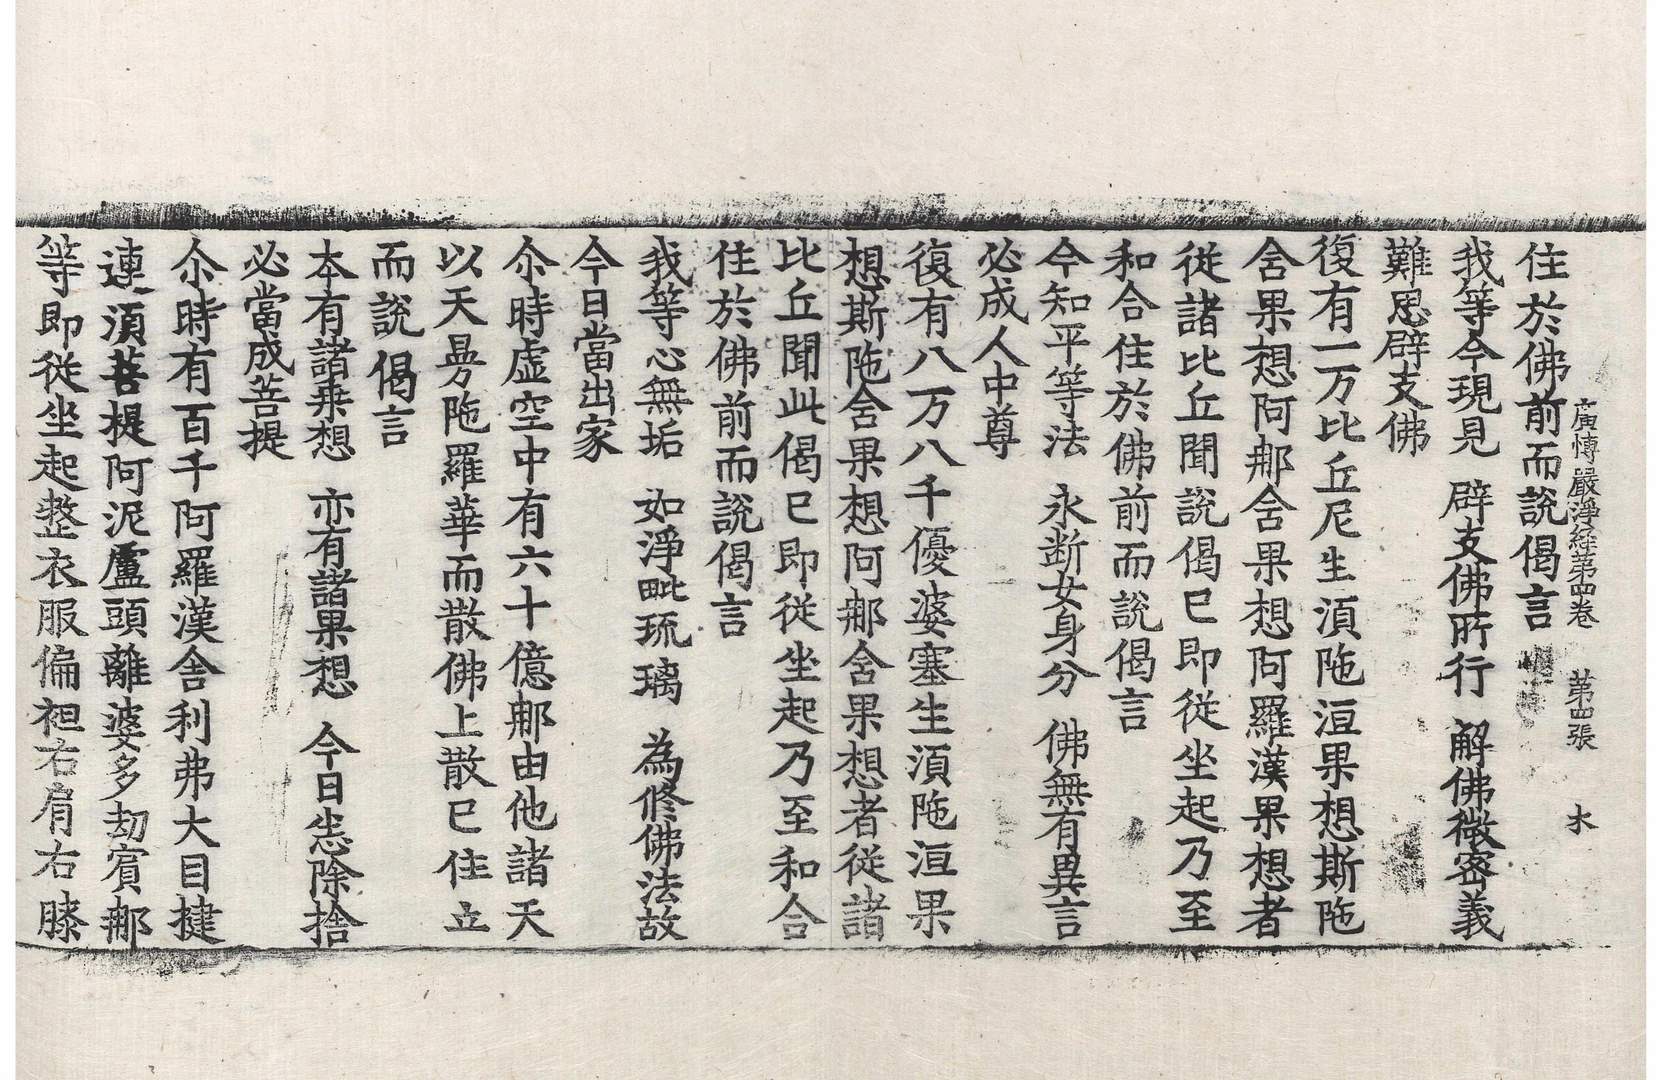 廣愽嚴淨経第四卷 第四張 木
住於佛前而說偈言
我等今現見 辟支佛所行 解佛微密義
難思辟支佛
復有一万比丘尼生湏陁洹果想斯陁
舍果想阿那舍果想阿羅漢果想者
從諸比丘聞說偈已即從坐起乃至
和合住於佛前而說偈言
今知平等法 永斷女身分 佛無有異言
必成人中尊
復有八万八千優婆塞生湏陁洹果
想斯陁舍果想阿那舍果想者從諸
比丘聞此偈已即從坐起乃至和合
住於佛前而說偈言
我等心無垢 如淨毗琉璃 為脩佛法故
今日當出家
尒時虛空中有六十億那由他諸天
以天曼陁羅華而散佛上散已住立
而說偈言
本有諸乘想 亦有諸果想 今日悉除捨
必當成菩提
尒時有百千阿羅漢舍利弗大目揵
連湏菩提阿泥盧頭離婆多劫賓那
等即從坐起整衣服偏袒右肩右膝